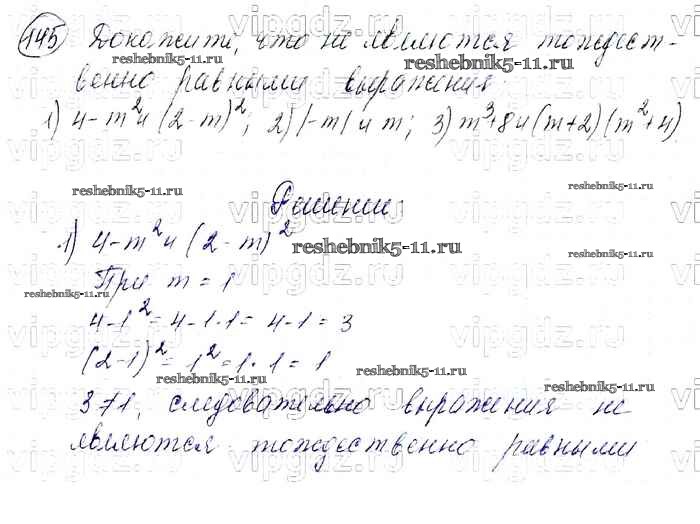 145 Докажите, что не являются тождест-
венно равными выражения
1) 4-m² и (2-m)²; 2) |-m| и m; 3) m³+8 и (m+2)(m²+4)
Решение
1) 4-m² и (2-m)²
При m = 1
4-1² = 4-1·1 = 4-1 = 3
(2-1)² = 1² = 1·1 = 1
3≠1, следовательно выражения не
являются тождественно равными
reshebnik5-11.ru
vipgdz.ru